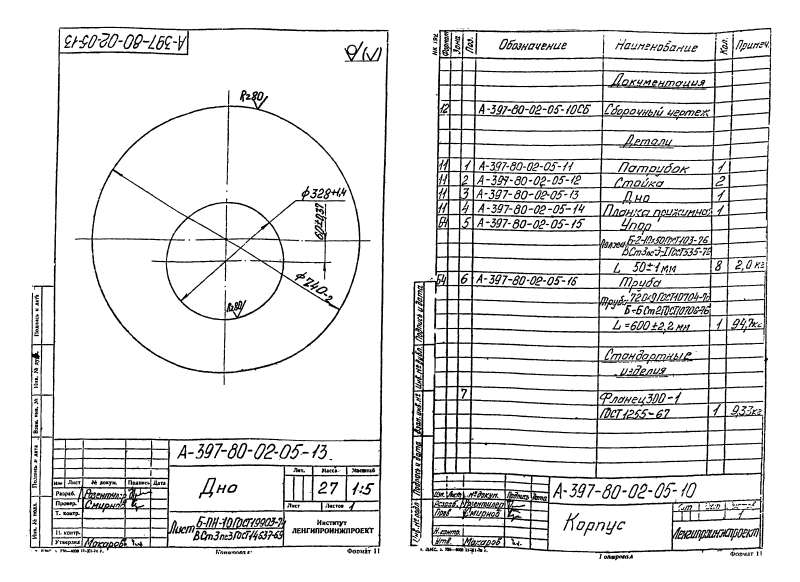 А-397-80-02-05-13
Rz80
ф328+1,4
60±0,37
ф740-2
Rz80
Подпись и дата
Взам. инв. №
Подпись и дата
Инв. № подл.
А-397-80-02-05-13
Дно
Лит. Масса Масштаб
27 1:5
Лист Листов 1
Изм Лист № докум. Подпись Дата
Разраб.
Провер. Смирнов
Т. контр.
Н. контр.
Утвердил Макаров
Лист Б-ПН-10 ГОСТ 19903-74
ВСт3пс3 ГОСТ 14637-69
Институт
ЛЕНГИПРОИНЖПРОЕКТ
Копировал
Формат 11
Формат Зона Поз. Обозначение Наименование Кол. Примеч.
Документация
12 А-397-80-02-05-10СБ Сборочный чертеж
Детали
11 1 А-397-80-02-05-11 Патрубок 1
11 2 А-397-80-02-05-12 Стойка 2
11 3 А-397-80-02-05-13 Дно 1
11 4 А-397-80-02-05-14 Планка прижимная 1
Б4 5 А-397-80-02-05-15 Упор
ВСт3пс3-I ГОСТ 535-79
L 50±1 мм 8 2,0 кг
Б4 6 А-397-80-02-05-16 Труба
Труба
L=600±2,2 мм 1 94,7кг
Стандартные
изделия
7 Фланец 300-1
ГОСТ 1255-67 1 9,33кг
Подпись и дата
Инв. № дубл.
Взам. инв. №
Подпись и дата
Инв. № подл.
А-397-80-02-05-10
Корпус
Изм. Лист № докум. Подпись Дата
Пров Смирнов
Н.контр.
Утв. Макаров
1
Ленгипроинжпроект
Копировал
Формат 11